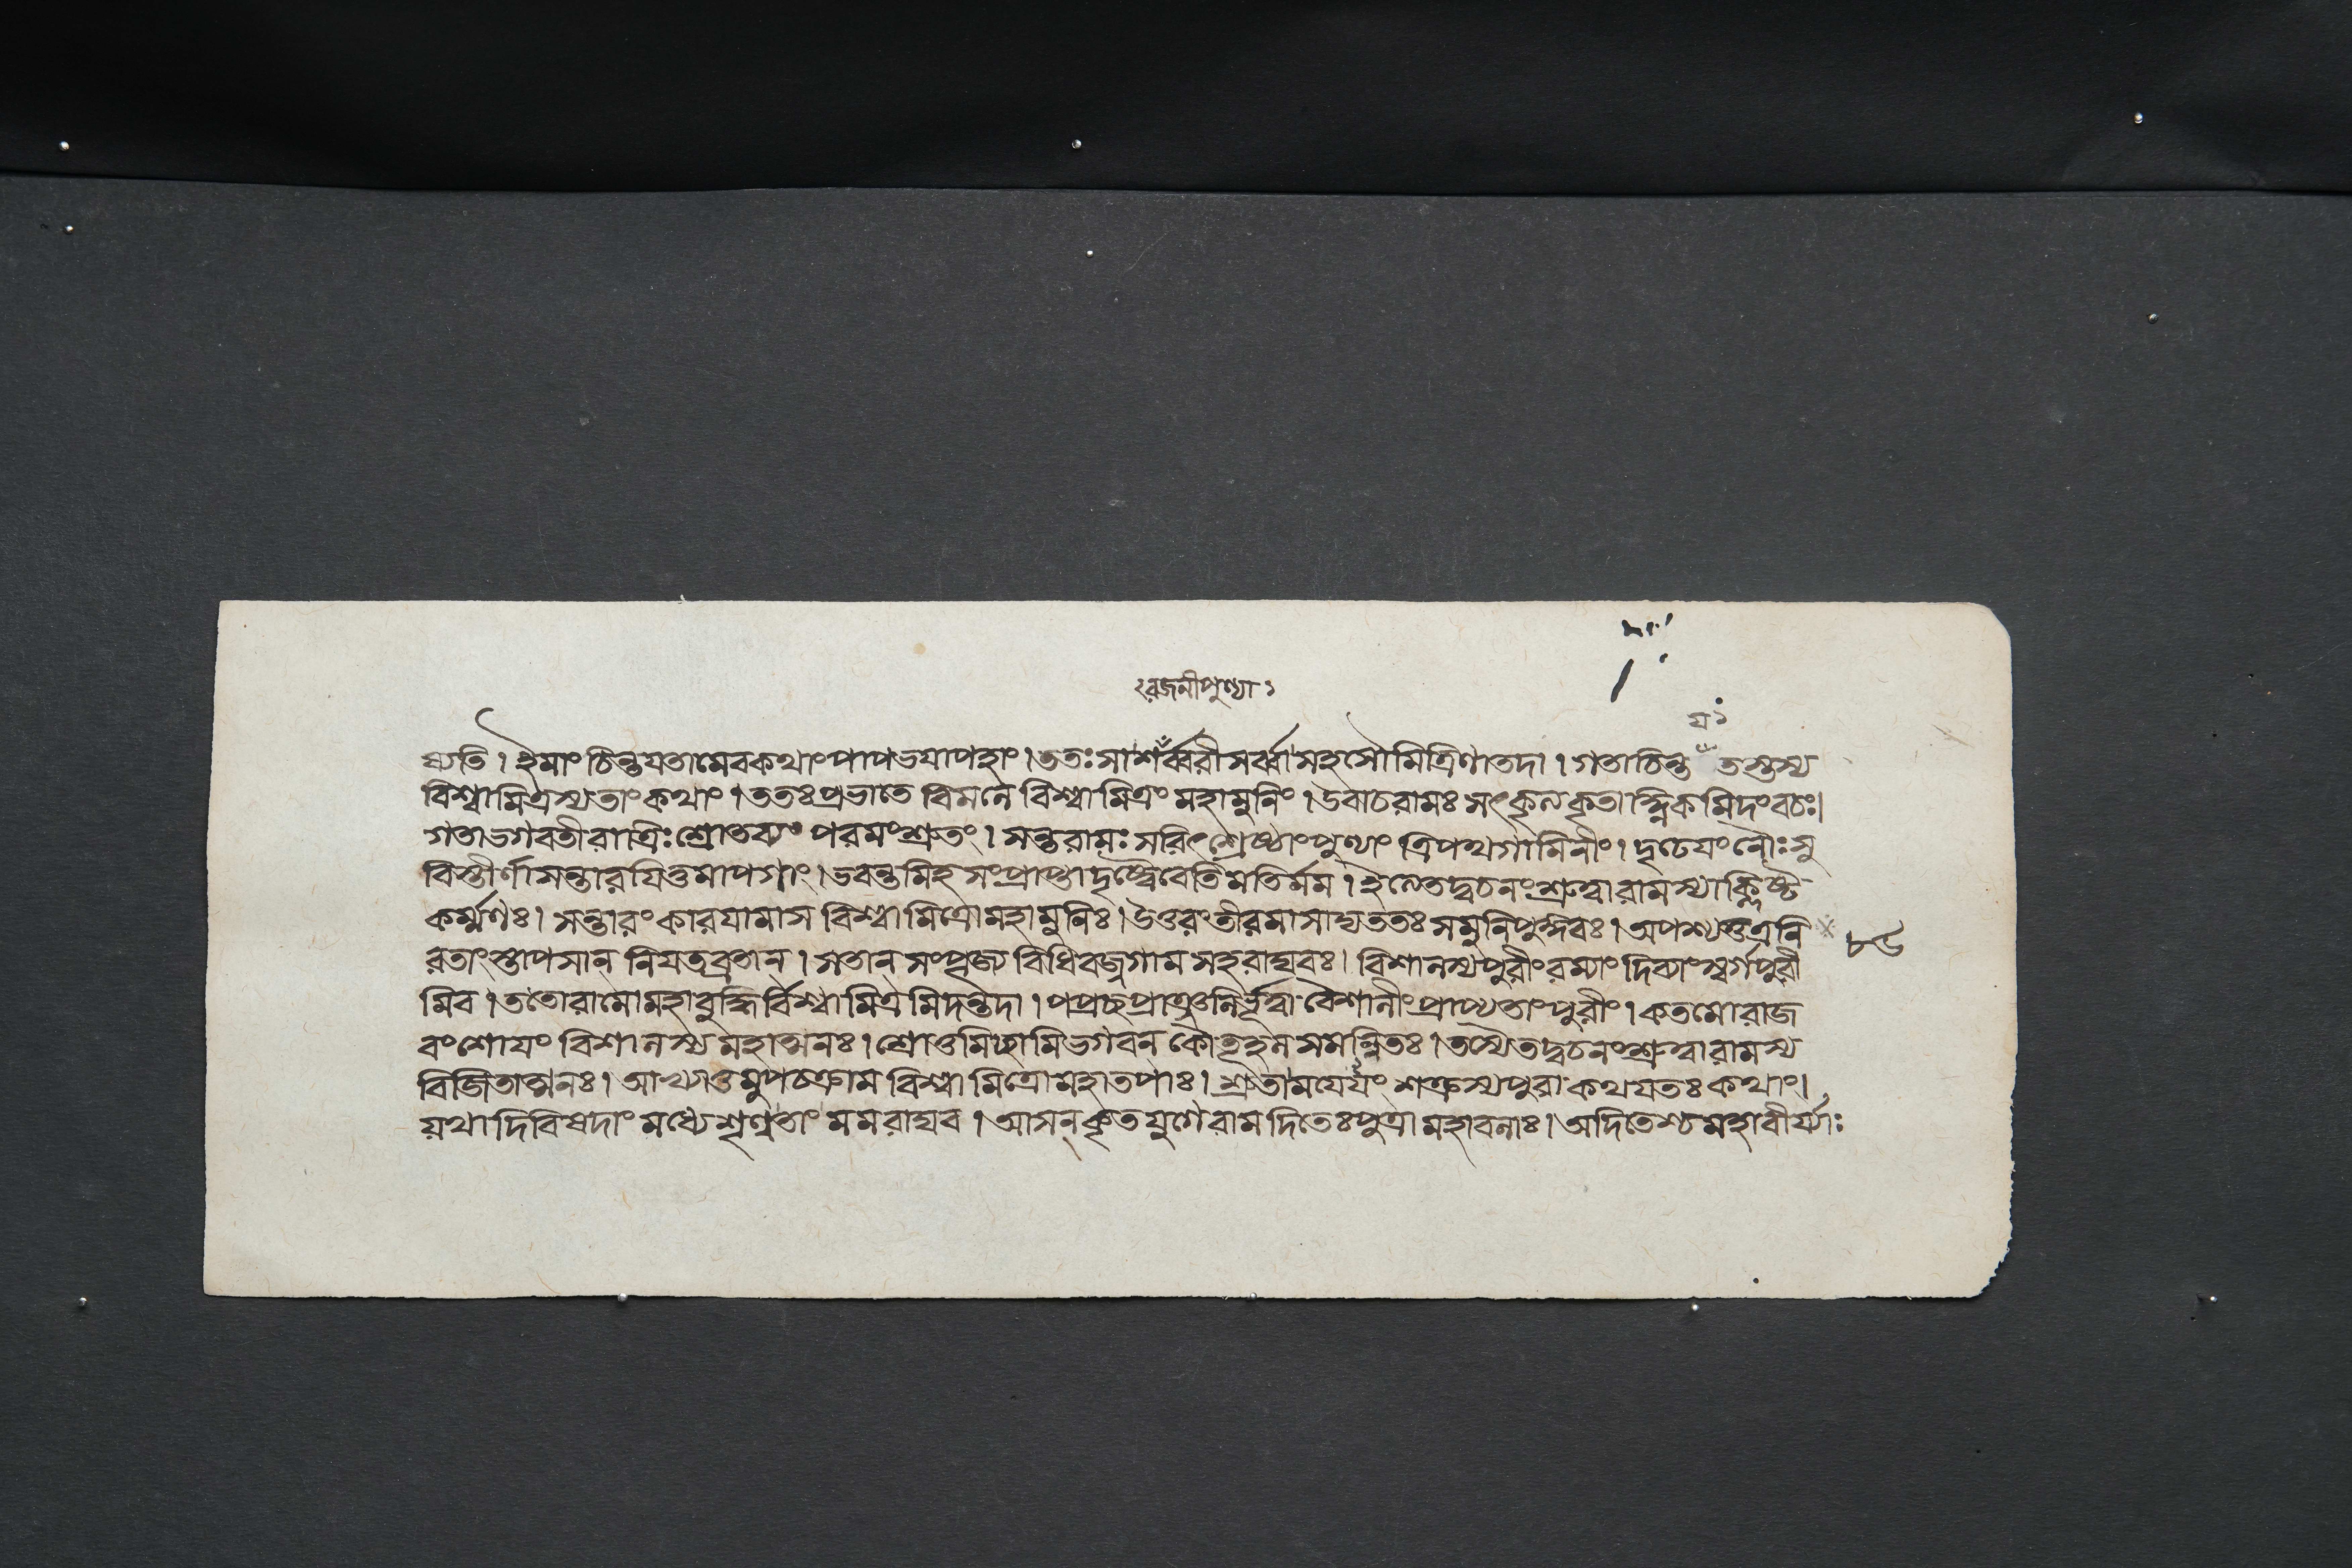 রজনীপুণ্যা ১
য ১
ষ্যতি । ইমাং চিন্তযতামেবকথাংপাপভযাপহাং । ততঃসাশর্ব্বরীসর্ব্বাসহসৌমিত্রিণাতদা । গতাচিন্ত তস্তস্য
বিশ্বামিত্রস্যতাংকথাং । ততঃপ্রভাতে বিমলে বিশ্বামিত্রং মহামুনিং । উবাচরামঃ কৃতাহ্নিকমিদংবচঃ।
গতাভগবতীরাত্রিঃশ্রোতব্যং পরমংশ্রুতং । সন্তরামঃ সরিৎশ্রেষ্ঠাংপুণ্যাং ত্রিপথগামিনীং । দৃঢেযংনৌঃসু
বিস্তীর্ণাসন্তারযিতুমাপগাং । ভবন্তমিহসংপ্রাপ্তাদৃষ্ট্বৈবেতিমতির্মম । ইত্যেতদ্বচনংশ্রুত্বারামস্যাক্লিষ্ট
কর্ম্মণঃ। সন্তারংকারযামাস বিশ্বামিত্রোমহামুনিঃ। উত্তরংতীরমাসাদ্যততঃসমুনিপুঙ্গবঃ। অপশ্যত্তত্রনি
রতাংস্তাপসান্ নিযতব্রতান্ । সতান্ সংপূজ্য বিধিবজ্জগাম সহরাঘবঃ। বিশালস্যপুরীংরম্যাং দিব্যাংস্বর্গপুরী
মিব । ততোরামোমহাবুদ্ধির্বিশ্বামিত্রমিদন্তদা । পপ্রচ্ছপ্রাঞ্জলির্ভূত্বা বৈশালীংপ্রাপ্যতাংপুরীং । কতমোরাজ
বংশোযং বিশালস্য মহাত্মনঃ। শ্রোতুমিচ্ছামিভগবন্ কৌতূহলসমন্বিতঃ। তস্যৈতদ্বচনংশ্রুত্বারামস্য
বিজিতাত্মনঃ। আখ্যাতুমুপচক্রাম বিশ্বামিত্রোমহাতপাঃ। শ্রুতাময়েযং শক্রস্যপুরা কথযতঃকথাং।
য়থাদিবিষদাং মধ্যেশৃণ্বতাং মমরাঘব । আসন্ কৃতযুগেরামদিতেঃপুত্রামহাবলাঃ। অদিতেশ্চমহাবীর্য্যাঃ
৮৬